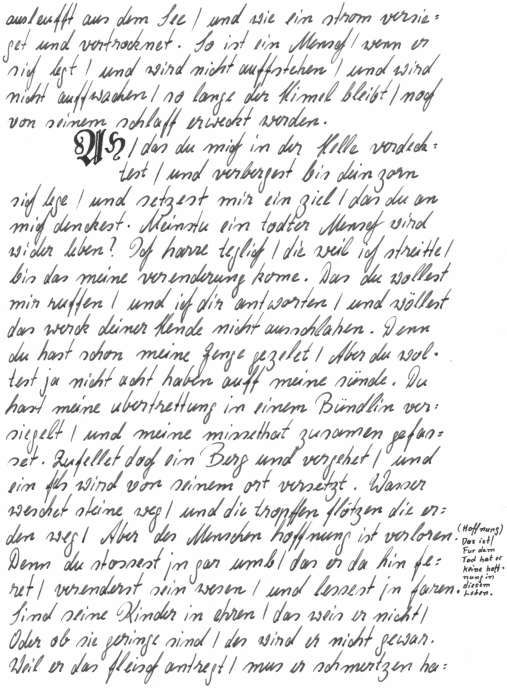 ausleufft aus dem See / und wie ein strom versie=
get und vertrocknet. So ist ein Mensch / wenn er
sich legt / und wird nicht auffstehen / und wird
nicht auffwachen / so lange der Himel bleibt / noch
von seinem schlaff erweckt werden.
Ah / das du mich in der Helle verdeck=
test / und verbergest bis dein zorn
sich lege / und setzest mir ein ziel / das du an
mich denckest. Meinstu ein todter Mensch wird
wider leben? Ich harre teglich / die weil ich streitte /
bis das meine verenderung kome. Das du wollest
mir ruffen / und ich dir antworten / und wöllest
das werck deiner Hende nicht ausschlahen. Denn
du hast schon meine Genge gezelet / Aber du wol=
test ja nicht acht haben auff meine sünde. Du
hast meine ubertrettung in einem Bündlin ver=
siegelt / und meine missethat zusamen gefas=
set. Zufellet doch ein Berg und vergehet / und
ein fels wird von seinem ort versetzt. Wasser
weschet steine weg / und die tropffen flötzen die er=
den weg / Aber des Menschen hoffnung ist verloren.
(Hoffnung)
Das ist /
Fur dem
Tod hat er
keine hoff=
nung in
diesem
Leben.
Denn du stossest jn gar umb / das er da hin fe=
ret / verenderst sein wesen / und lessest jn faren.
Sind seine Kinder in ehren / das weis er nicht /
Oder ob sie geringe sind / des wird er nicht gewar.
Weil er das fleisch antregt / mus er schmertzen ha=